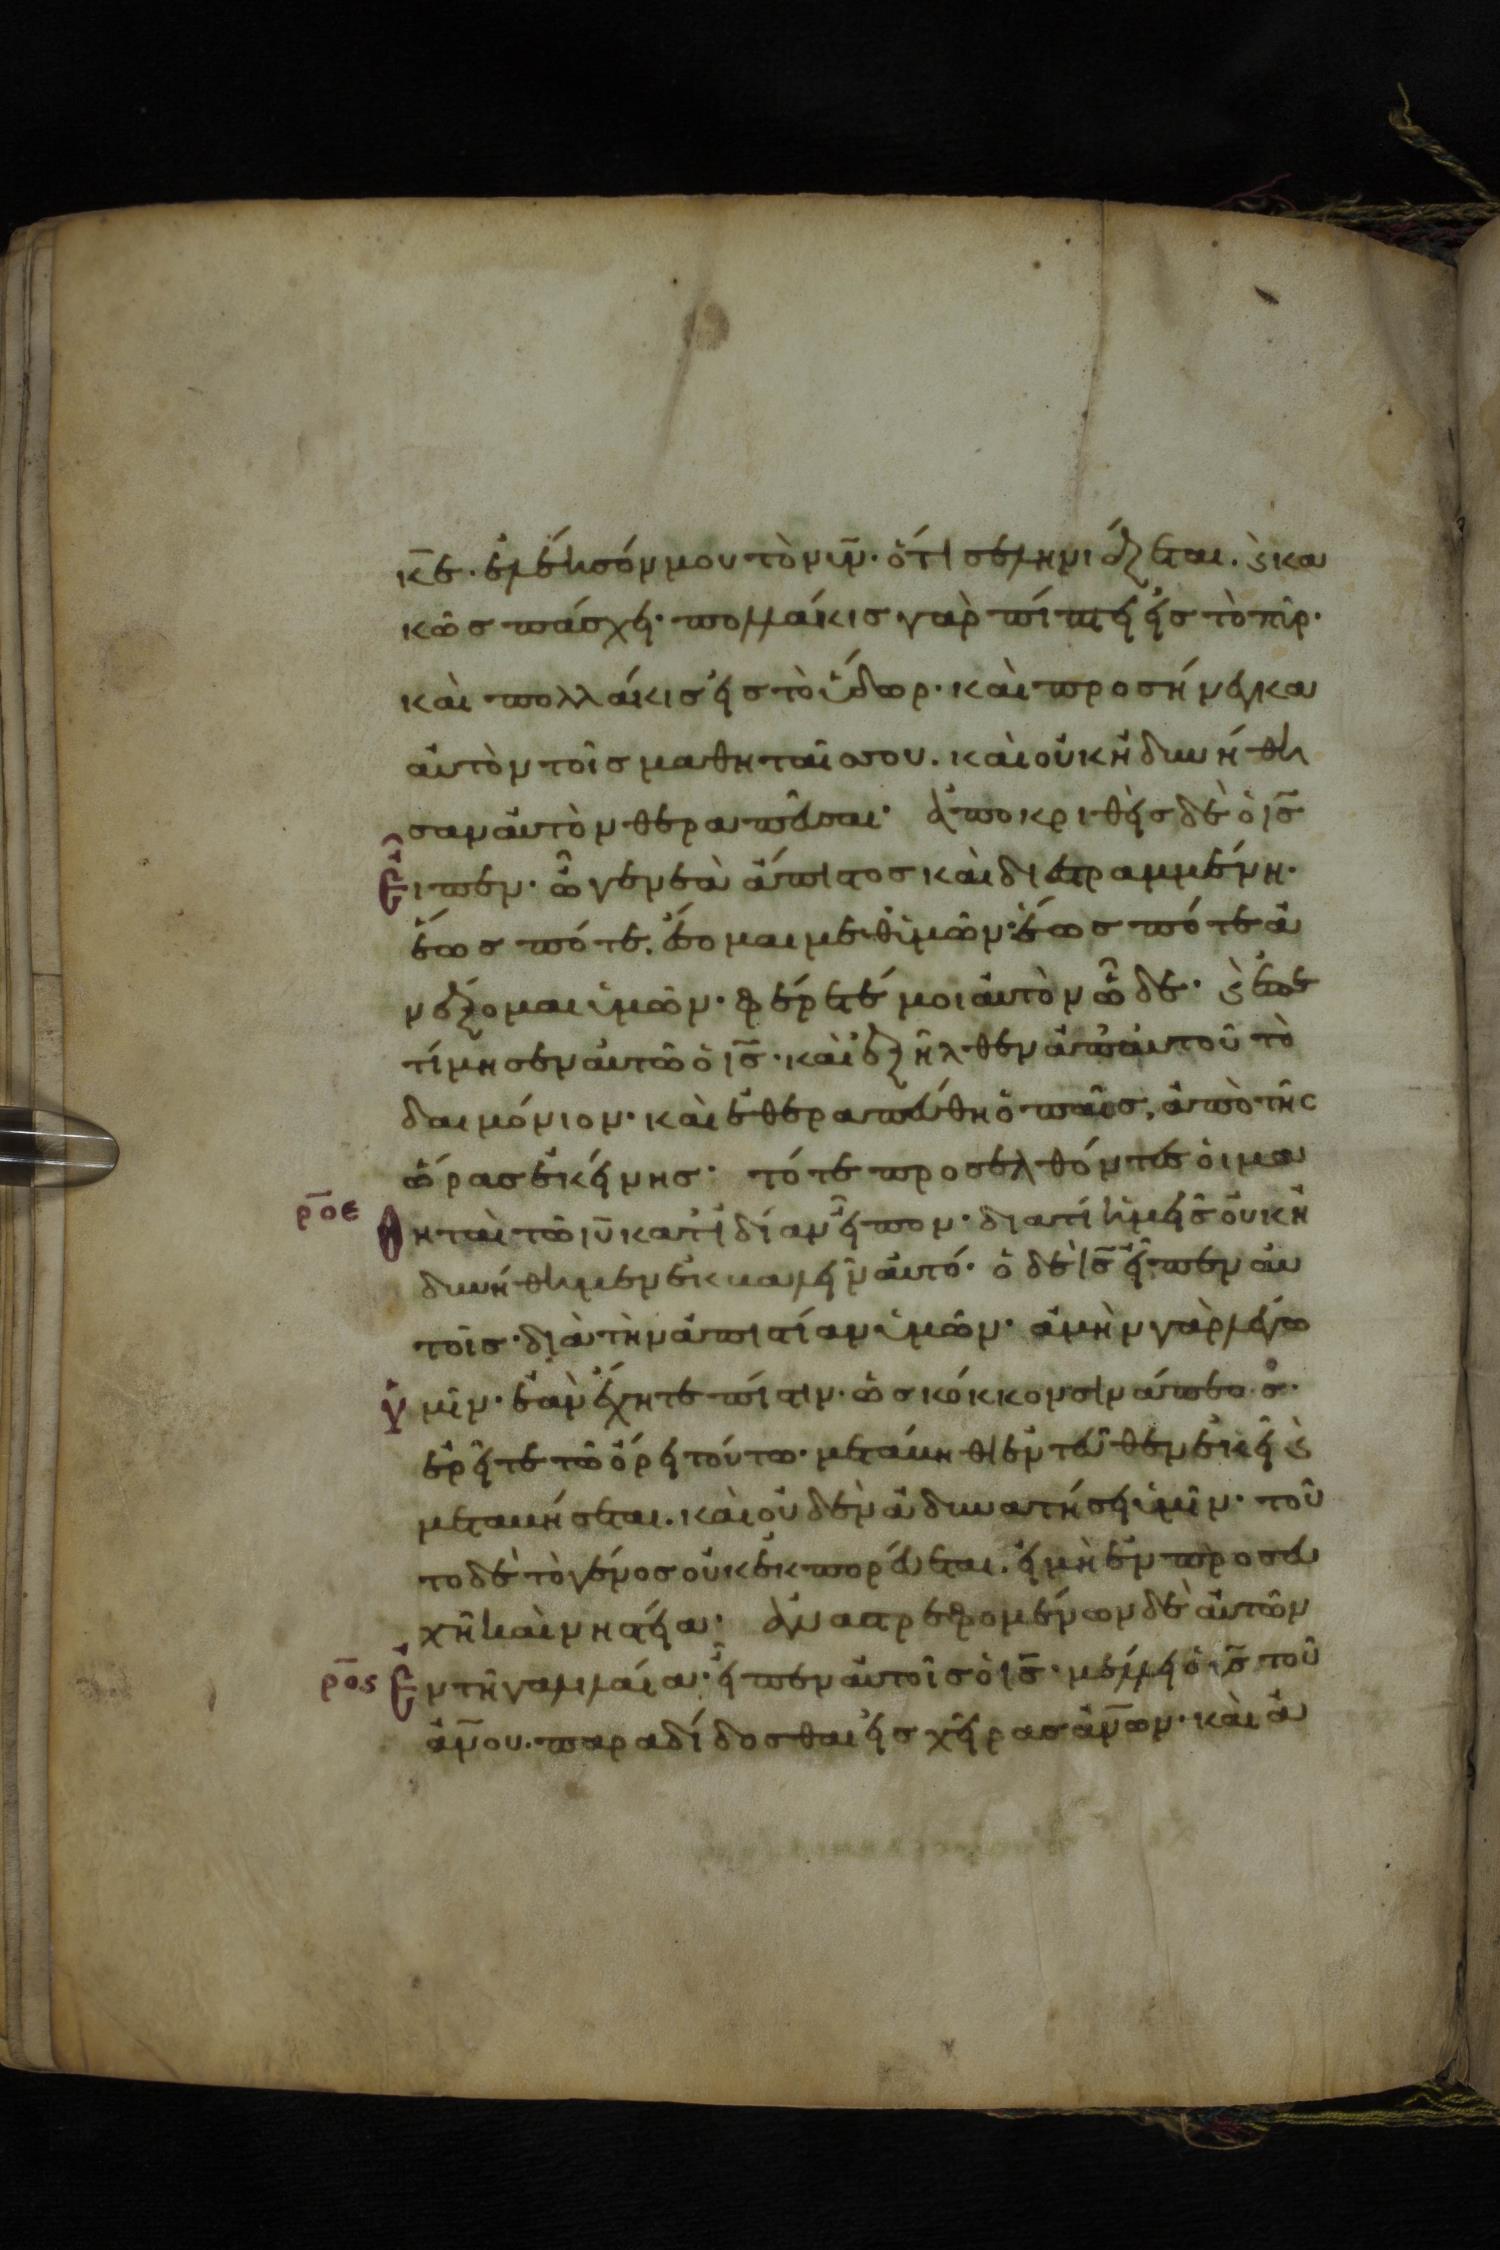 κ̅ε̅. ἐλέησόν μου τὸν υ̅ν̅. ὅτι σεληνιάζεται. ϗ κα
κῶς πάσχει· πολλάκις γὰρ πίπτει εἰς τὸ πῦρ·
καὶ πολλάκις εἰς τὸ ὕδωρ· καὶ προσήνεγκα
αὐτὸν τοῖς μαθηταῖς σου. καὶ οὐκ ἠδυνήθη
σαν αὐτὸν θεραπεῦσαι· ἀποκριθεὶς δὲ ὁ ι̅ς̅
εἶπεν· ὦ γενεὰ ἄπιστος καὶ διεστραμμένη·
ἕως πότε. ἔσομαι μεθ' ὑμῶν· ἕως πότε ἀ
νέξομαι ὑμῶν· φέρετέ μοι αὐτὸν ὧδε· ϗ ἐπε
τίμησεν αὐτῶ ὁ ι̅ς̅· καὶ ἐξῆλθεν ἀπ' αὐτοῦ τὸ
δαιμόνιον· καὶ ἐθεραπεύθη ὁ παῖς, ἀπὸ τῆς
ὥρας ἐκείνης· τότε προσελθόντες οἱ μα
ρ̅ο̅ε̅ θηταὶ τῶ ι̅υ̅ κατ' ἰδίαν εἶπον· διατί ἡμεῖς οὐκ ἠ
δυνήθημεν ἐκβαλεῖν αὐτό· ὁ δὲ ι̅ς̅ εἶπεν αὐ
τοῖς· διὰ τὴν ἀπιστίαν ὑμῶν· ἀμὴν γὰρ λέγω
ὑμῖν· ἐὰν ἔχητε πίστιν· ὡς κόκκον σινάπεως·
ἐρεῖτε τῶ ὄρει τούτω· μετάβηθι ἐντεῦθεν ἐκεῖ ϗ
μεταβήσεται. καὶ οὐδὲν ἀδυνατήσει ὑμῖν· τοῦ
το δὲ τὸ γένος οὐκ ἐκπορεύεται. εἰ μὴ ἐν προσευ
χῆ καὶ νηστεία· ἀναστρεφομένων δὲ αὐτῶν
ρ̅ο̅ς̅ ἐν τῆ γαλιλαία· εἶπεν αὐτοῖς ὁ ι̅ς̅· μέλλει ὁ υ̅ς̅ τοῦ
ἀν̅ου. παραδίδοσθαι εἰς χεῖρας ἀν̅ων· καὶ ἀ